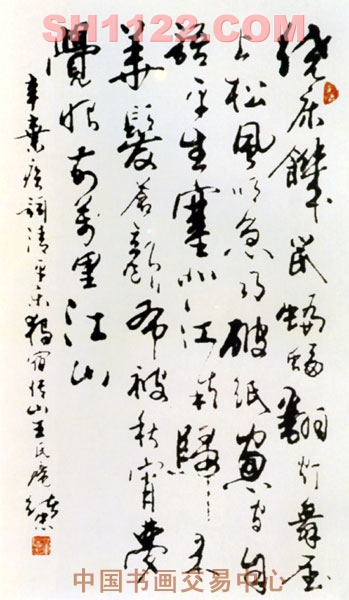 SH1122.COM
繞床饑鼠蝙蝠翻灯舞屋
上松风吹急雨破紙窗間自
語平生塞北江南歸来
華髮蒼顔布被秋宵夢
覺眼前萬里江山
辛棄疾词清平乐獨宿博山王氏庵
中国书画交易中心